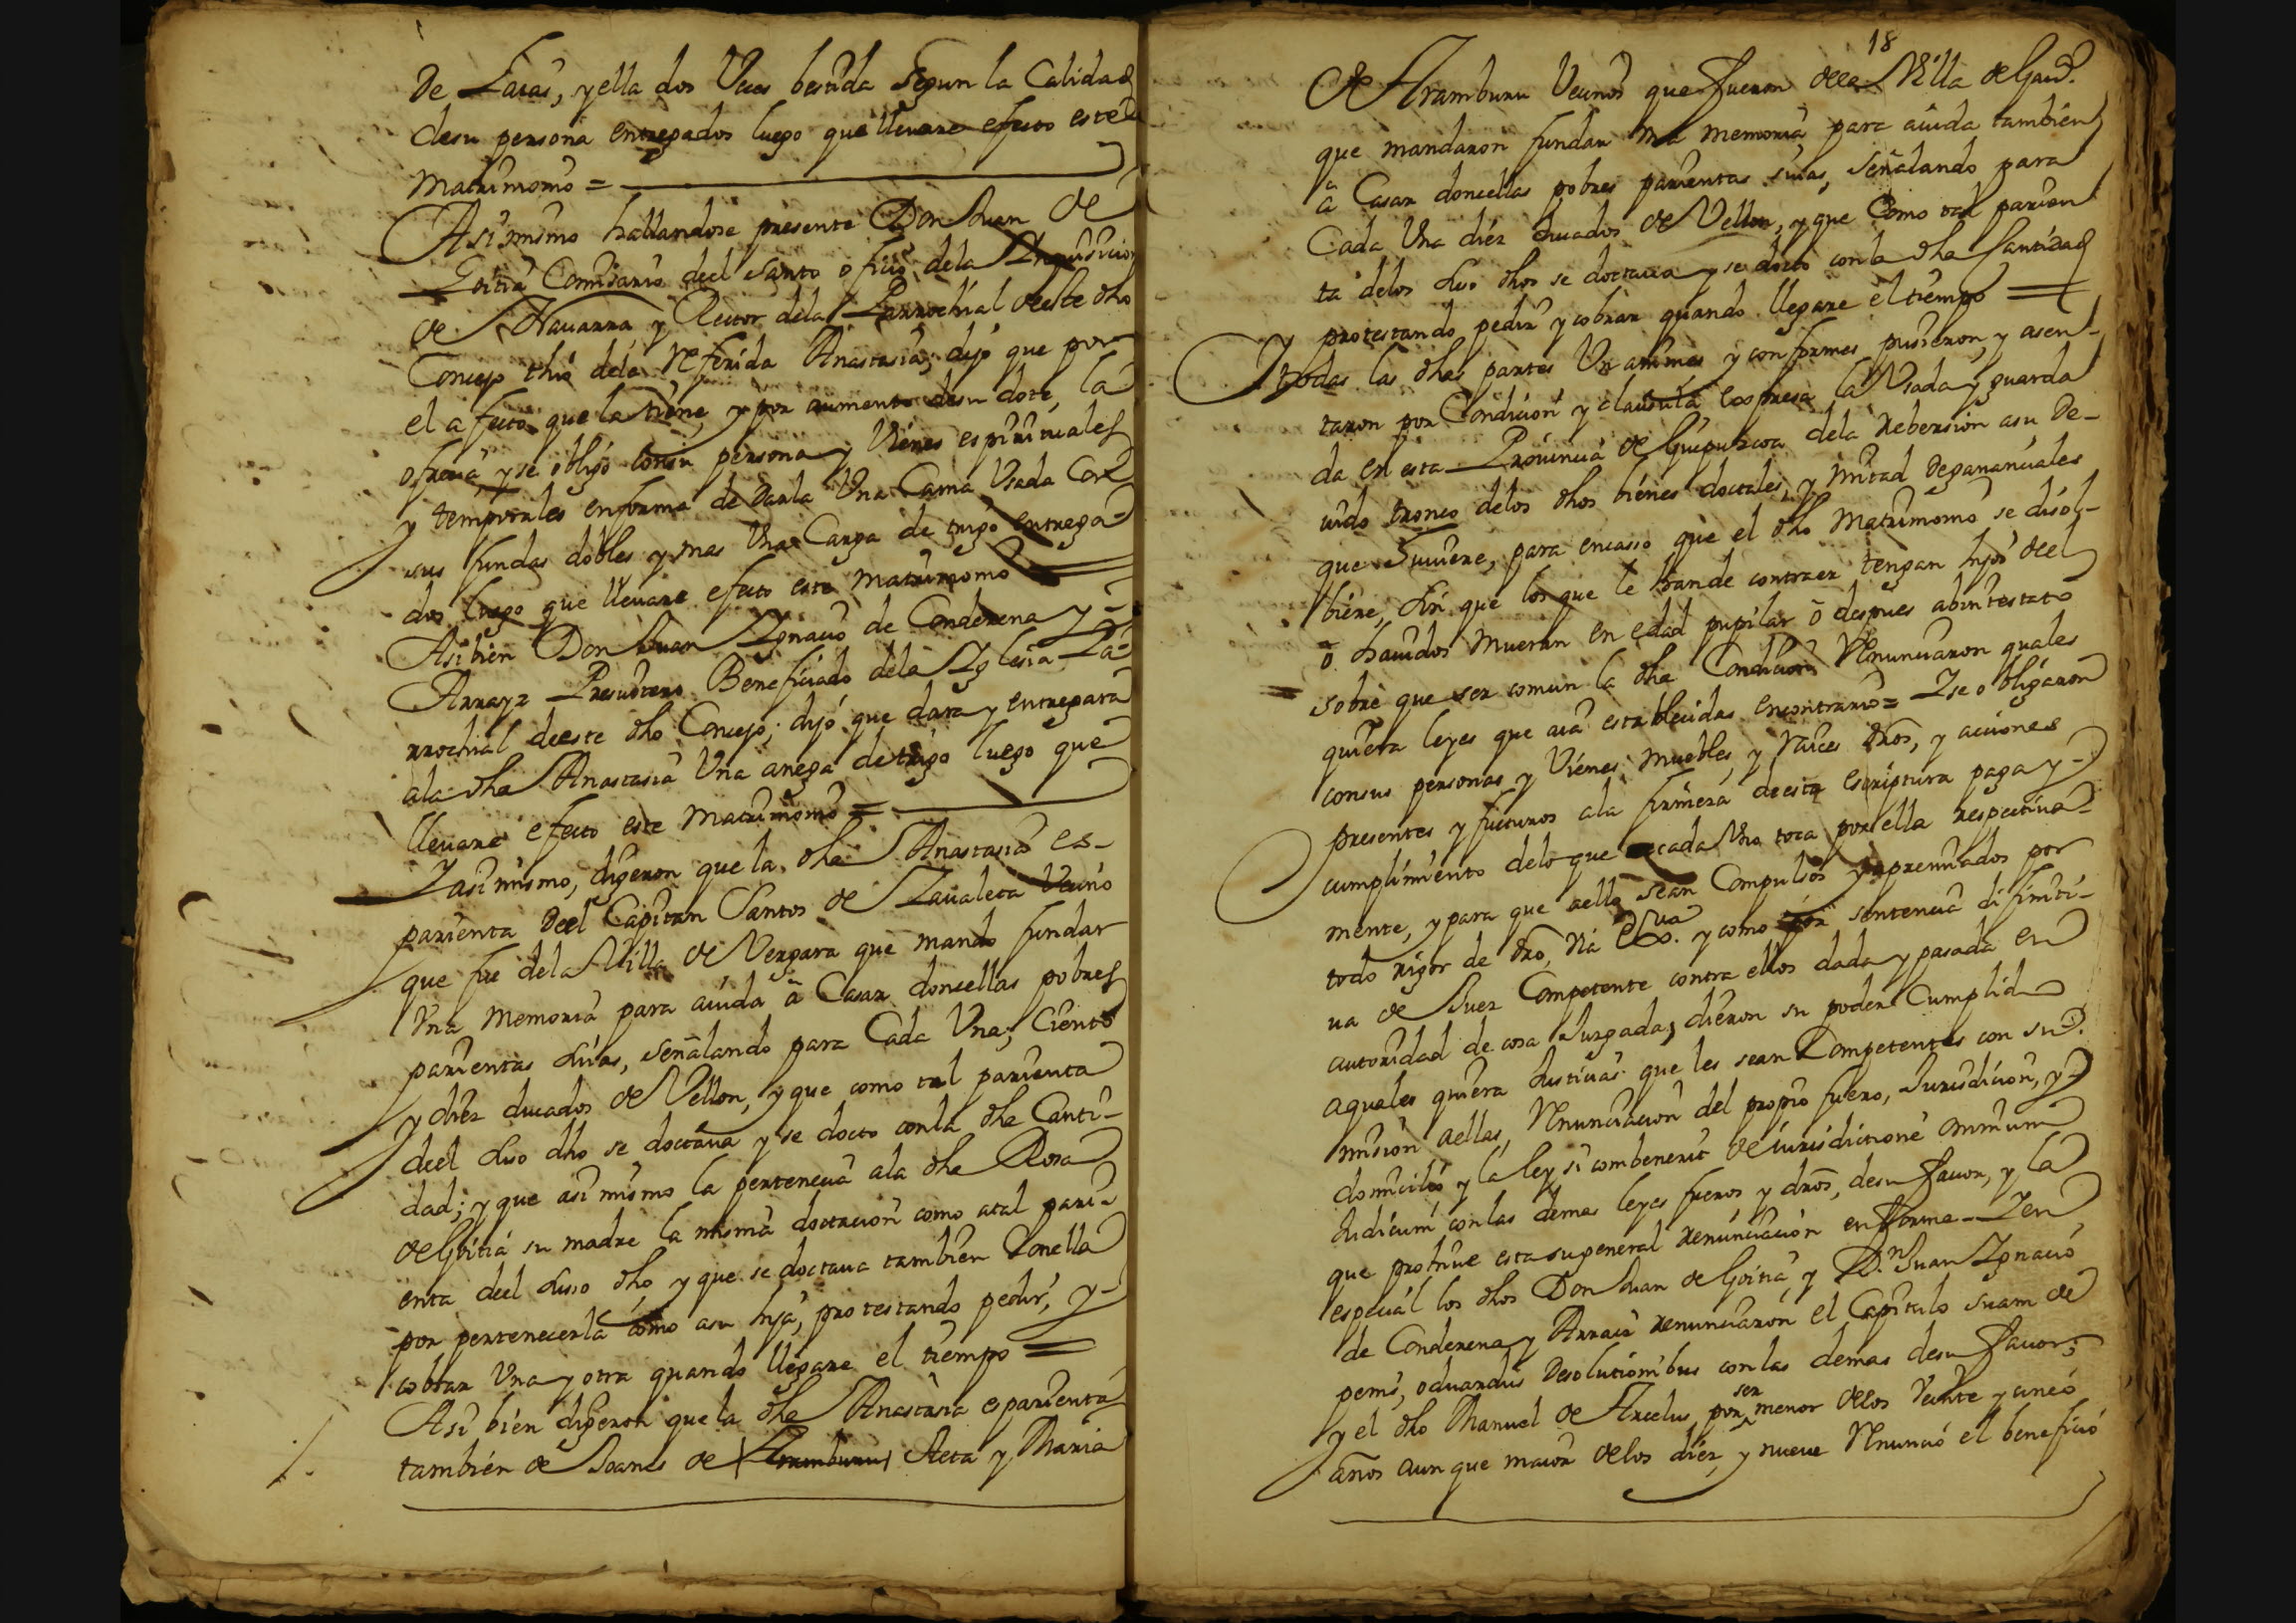 de Lacas, y ella dos Veces bestida Segun la Calidad
desu persona entregados luego que llevare efecto este
matrimonio =
Asimismo hallandose presente Don Juan de
Goitia Comisario deel Santo oficio dela Inquisicion
de Navarra, y Rector dela Parrochial deeste dho
Concejo thio dela Referida Anastasia, dijo que por
el afecto que la tiene, y por aumento desu dote, la
ofrecia, y se obligó consu persona y Vienes espirituales
y temporales enforma de darla Una Cama Usada Con
sus fundas dobles y mas Una Carga de trigo entrega-
dos luego que llevare efecto este matrimonio =
Asi bien Don Juan Ygnacio de Conderena y
Arrayz Presvitero Beneficiado dela Yglesia Pa-
rrochial deeste dho Concejo; dijó que dara y entregara
ala dha Anastasia Una anega de trigo luego que
llevare efecto este matrimonio =
Y asimismo, digeron que la dha Anastasia es
parienta deel Capitan Santos de Zavaleta Vecino
que fue dela Villa de Vergara que mando fundar
Una Memoria para aiuda â Casar doncellas pobres
parientas suias, señalando para Cada Una, Ciento
y diez ducados de Vellon, y que como tal parienta
deel suso dho se doctava y se docto conla dha Canti-
dad; y que asi mismo la pertenecia ala dha Rosa
de Goitia su madre la misma doctacion como atal pari-
enta deel suso dho, y que se doctava tambien Conella
por pertenecerla como asu hija, protestando pedir, y
cobrar Una y otra quando llegare el tiempo =
Asi bien digeron que la dha Anastasia es parienta
tambien de Joanes de Aramburu Aeta y Maria
18
de Aramburu Vecinos que fueron deela Villa de
que mandaron fundar Una memoria, para aiuda tambien
a Casar doncellas pobres parientas suias, señalando para
Cada Una diez ducados de Vellon, y que Como tal parien
ta delos suso dhos se doctava y se docto conla dha Cantidad
protestando pedir y cobrar quando llegare el tiempo =
Y todas las dhas partes Unanimes y conformes pusieron, y asen-
taron por Condicion y clausula espresa la Usada y guarda
da en esta Provincia de Guipuzcoa dela Rebersion asu de-
uido tronco delos dhos bienes doctales, y mitad deganançiales
que huviere, para encasso que el dho Matrimonio se disol-
biere, sin que los que le hande contraer tengan hijos deel
ô. havidos mueran en edad pupilar ô despues abintestato
sobre que ser comun la dha Condicion Renunciaron quales
quiera leyes que aia establecidas encontrario = Y se obligaron
consus personas y Vienes muebles, y Raices dros, y aciones
presentes y futuros ala firmeza deesta escriptura paga y
cumplimiento delo que acada Uno toca por ella respectiva-
mente, y para que aello sean Compulsos y apremiados por
todo rigor de dro, Via ex.va y como por sentencia difiniti-
va de Juez Competente contra ellos dada y pasada en
autoridad de cosa Juzgada, dieron su poder Cumplido
aquales quiera Justicias que les sean Competentes con su
mision aellas, Renunciacion del propio fuero, Jurisdicion, y
domicilio y la ley si combenerit de iurisdictione omnium
Judicum conlas demas leyes fueros y dros, desu favor, y la
que prohive esta su general renunciación en forma = Y en
especial los dhos Don Juan de Goitia, y D.n Juan Ygnacio
de Conderena y Arraiz renunciaron el Capitulo Suam de
penis, oduardus desolutionibus conlas demas desu favor;
y el dho Manuel de Arcelus, por ser menor delos Veinte y cinco
años aunque maior delos diez, y nueve Renunció el beneficio